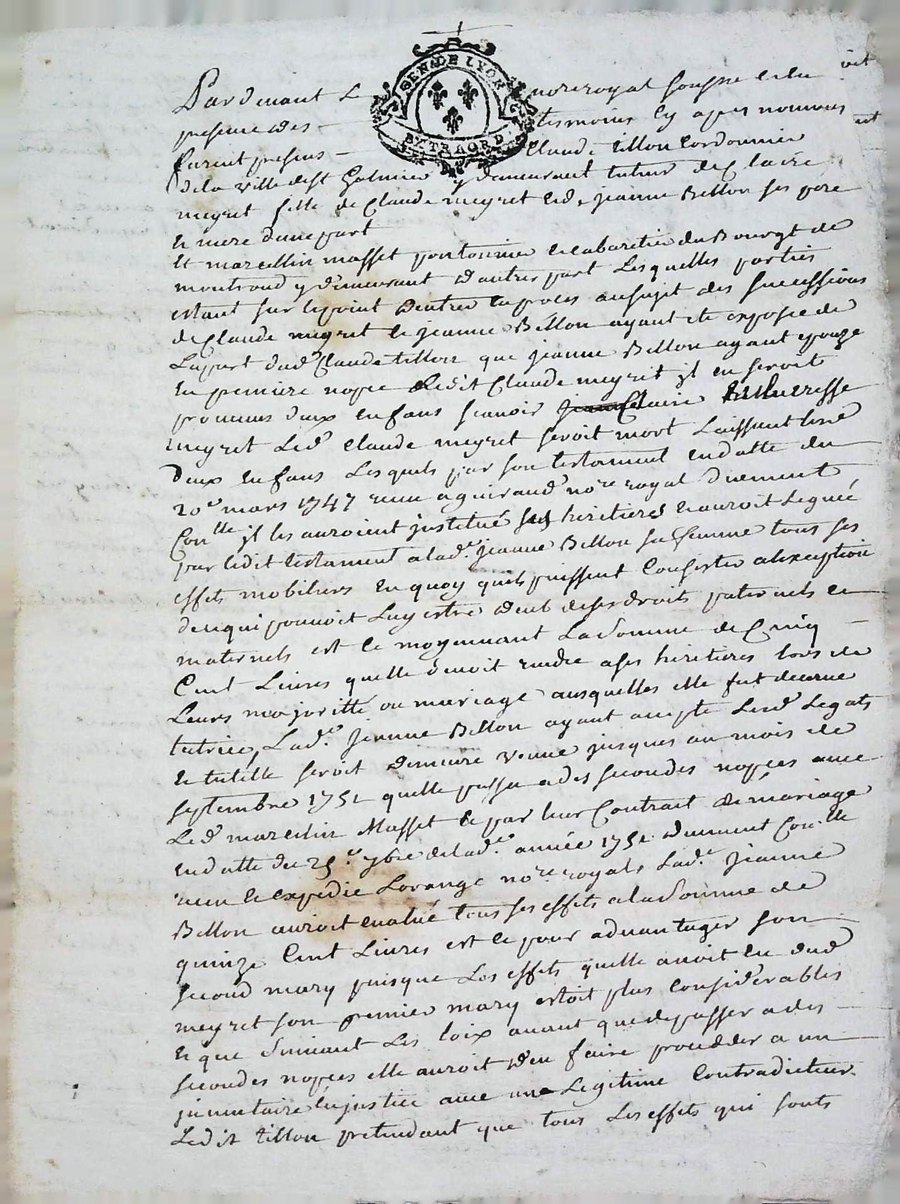 GEN. DE LYON
EXTRAORD.
Pardevant Le nore royal soussne et en
presence des tesmoins cy apres nommes
furent presens Claude tillon Cordonnier
dela ville de st Galmier y demeurant tuteur de Claire
meyret fille de Claude meyret et de jeanne Billon ses pere
et mere dune part
Et marcellin masset pontonnier et cabaretier du Bourgt de
montrond y demeurant dautre part Lesquelles parties
estant sur lepoint dentrer en proces au sujet des successions
de Claude meyret et jeanne Billon ayant ete exposé de
Lapart dud Claude tillon que jeanne Billon ayant epouze
En premiere nopce Ledit Claude meyret jl en seroit
provenus deux enfans scavoir Claire
meyret Led. Claude meyret seroit mort Laissant
deux enfans Lesquels par son testament en datte du
20e mars 1747 recu aguiraud nore royal duement
Conlle jl les auroient justitué ses heritieres et auroit Legué
par ledit testament a lade jeanne Billon sa femme tous ses
effets mobiliers En quoy quils puissent Consister a lexception
de ce qui pouvoit Luy estre deub de ses droits paternels et
maternels et ce moyennant La somme de Cinq
Cent Livres quelle devoit rendre a ses heritieres lors de
Leurs majoritté ou mariage ausquelles elle fut decerné
tutrice, Lade jeanne Billon ayant accepté Lesd Legats
et tutelle seroit demeuré veuve jusques au mois de
septembre 1751 quelle passa a des secondes nopces avec
Led marcellin Masset et par leur Contrait de mariage
en datte du 25e 7bre de lade année 1751 duement Conlle
recu et expedié Lorange nore royals Lade jeanne
Billon auroit evalué tous ses effets a la somme de
quinze Cent Livres et ce pour advantager son
second mary puisque Les effets quelle avoit eu dud
meyret son premier mary estoit plus considerables
et que suivant Les loix avant que de passer a des
secondes nopces elle auroit deu faire proceder a un
jnventaire en justice avec un Legitime Contradicteur
Ledit tillon pretendant que tous Les effets qui sonts